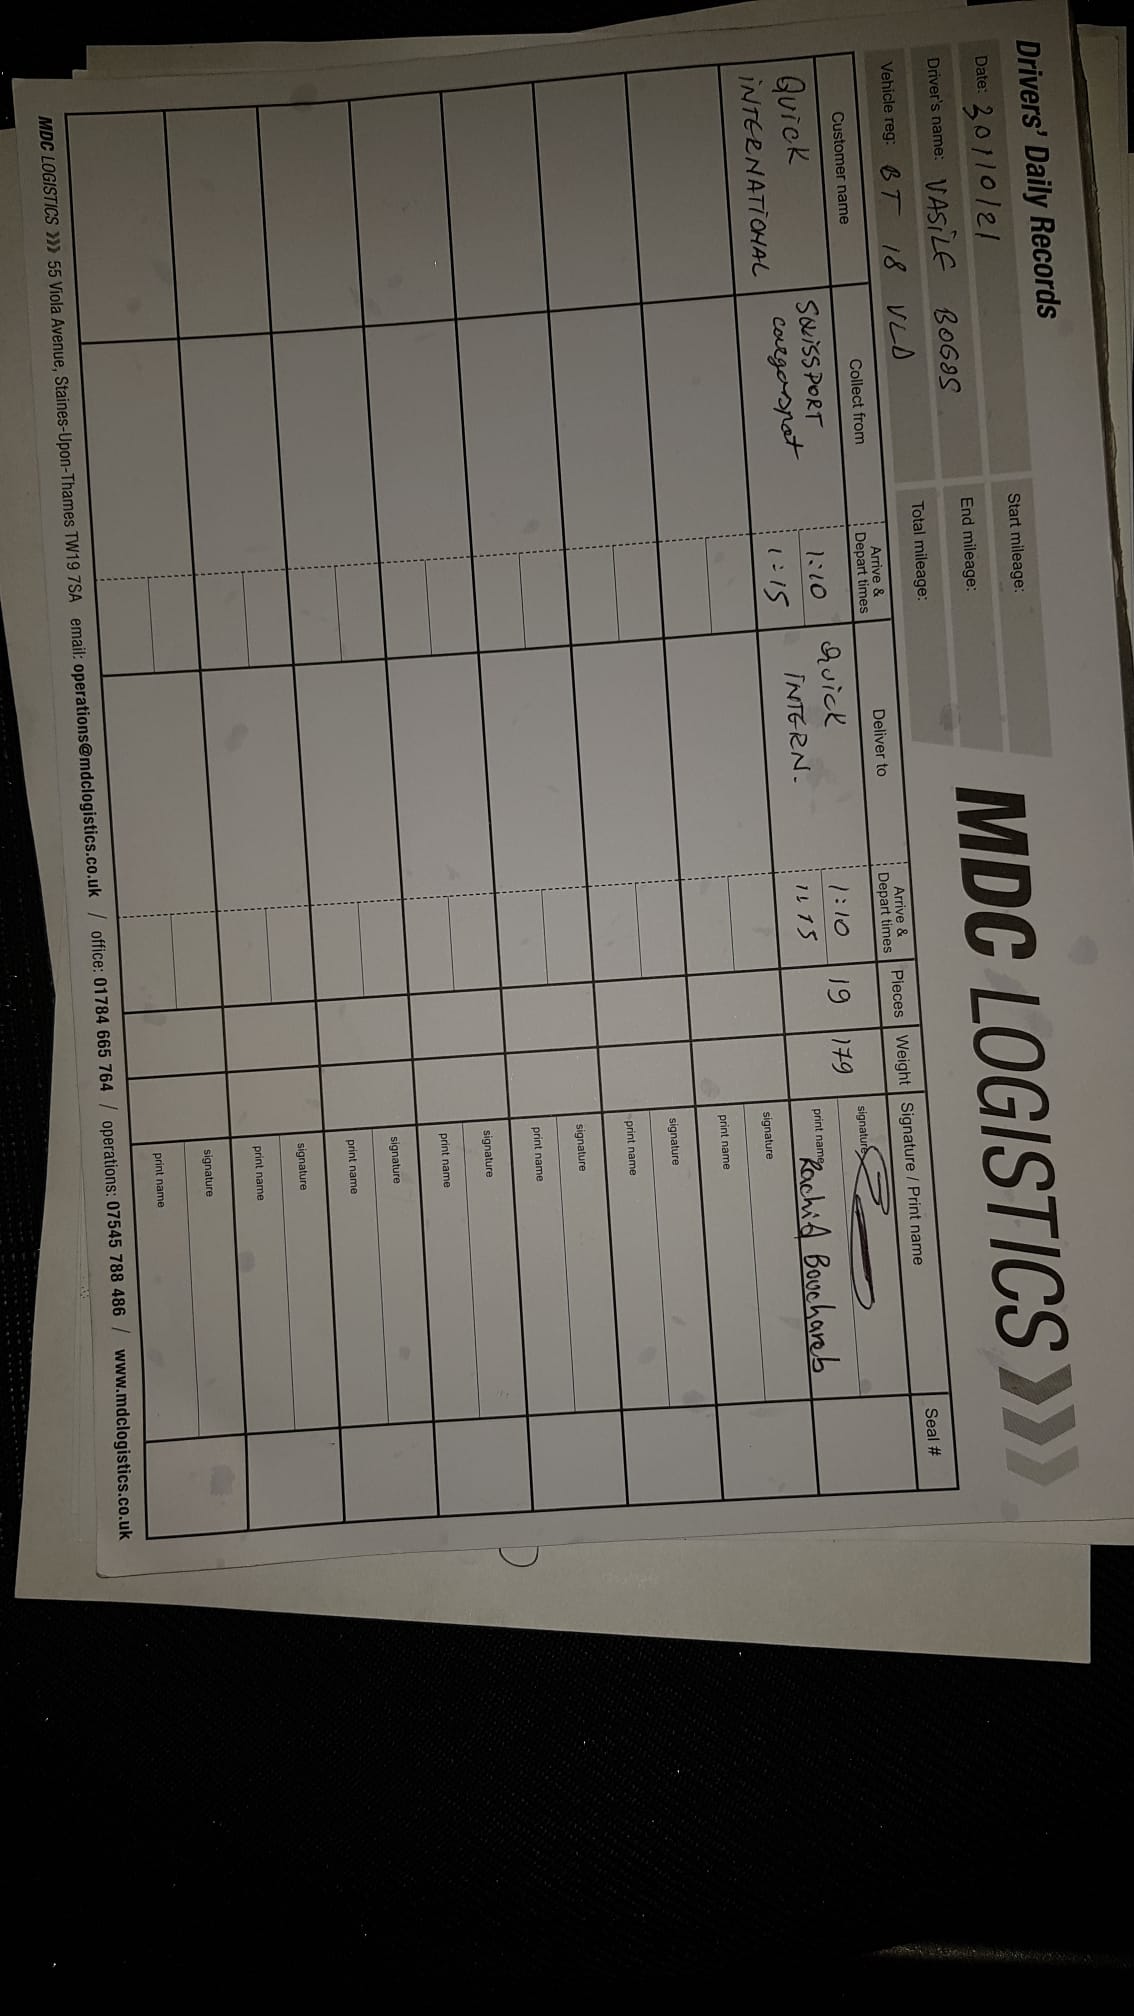 Drivers' Daily Records
MDC LOGISTICS
Date: 30/10/21
Start mileage:
Driver's name: VASILE BOGOS
End mileage:
Vehicle reg: BT 18 VLD
Total mileage:
Customer name
Collect from
Arrive &
Depart times
Deliver to
Arrive &
Depart times
Pieces
Weight
Signature / Print name
Seal #
Quick
INTERNATIONAL
SWISSPORT
1:10
1:15
Quick
INTERN.
1:10
19
179
signature
print name Rachid Bouchareb
signature
print name
signature
print name
signature
print name
signature
print name
signature
print name
signature
print name
signature
print name
MDC LOGISTICS >>> 55 Viola Avenue, Staines-Upon-Thames TW19 7SA email: operations@mdclogistics.co.uk / office: 01784 665 764 / operations: 07545 788 486 / www.mdclogistics.co.uk